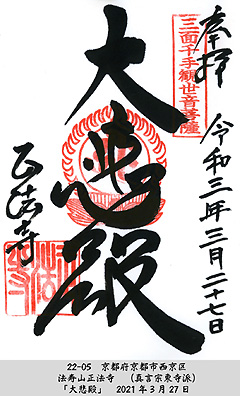 奉拝
三面千手観世音菩薩
令和三年三月二十七日
大悲殿
正法寺
22-05 京都府京都市西京区
法寿山正法寺 (真言宗東寺派)
「大悲殿」 2021年3月27日